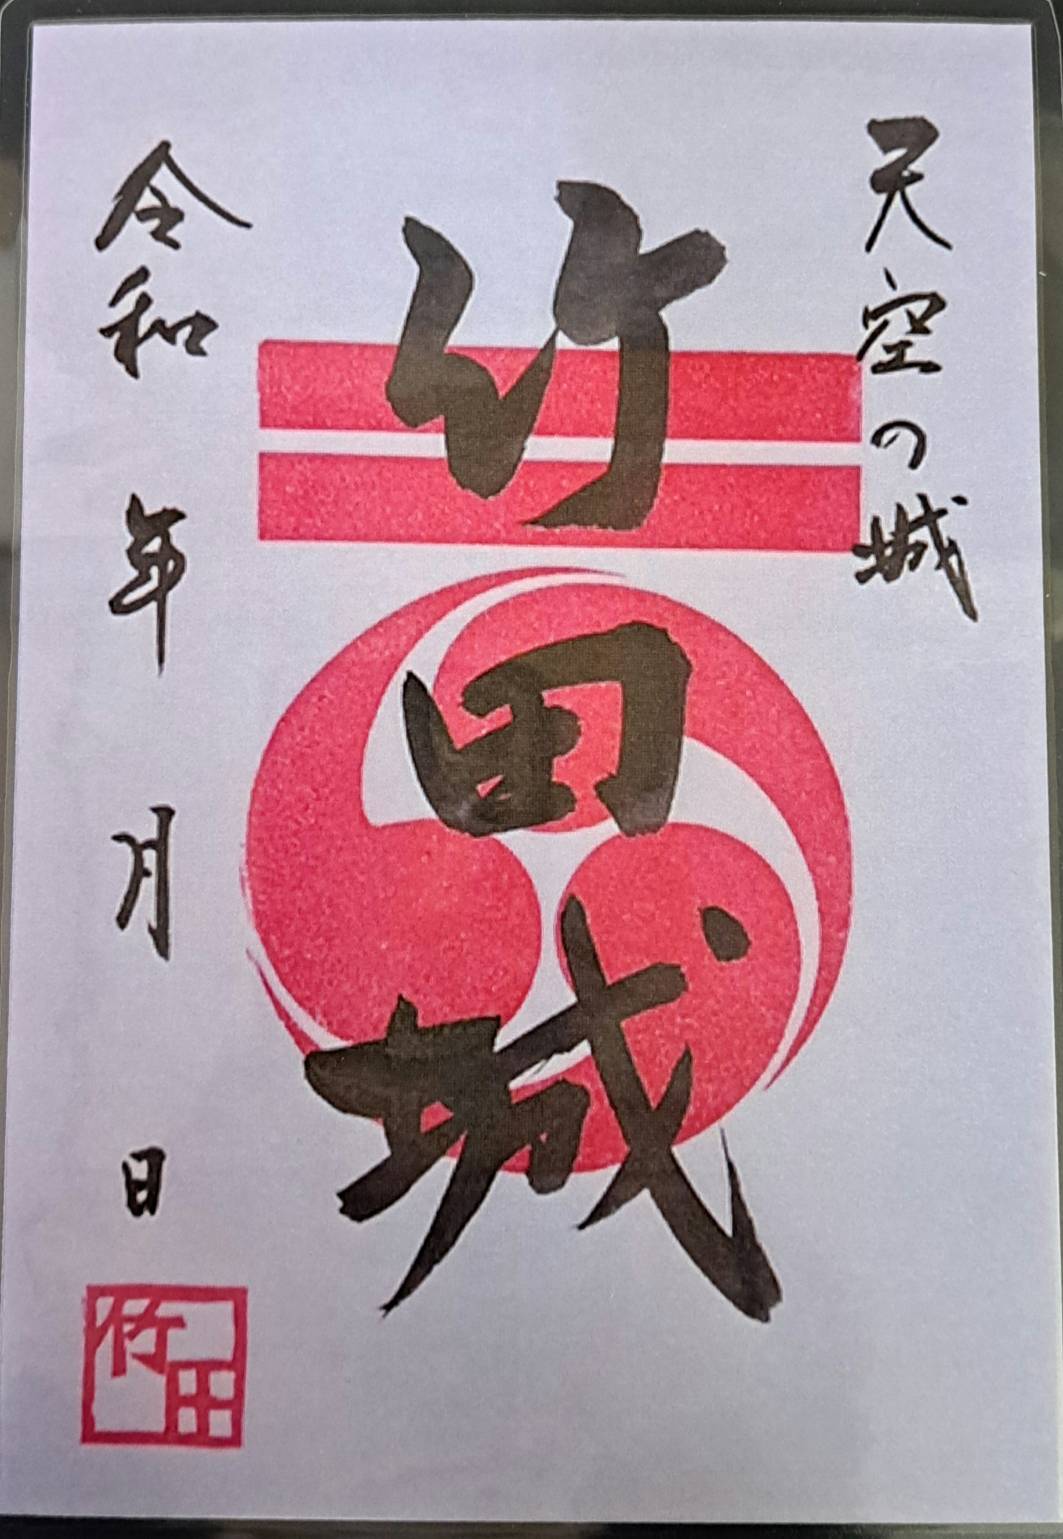 天空の城
竹田城
令和 年 月 日
竹田